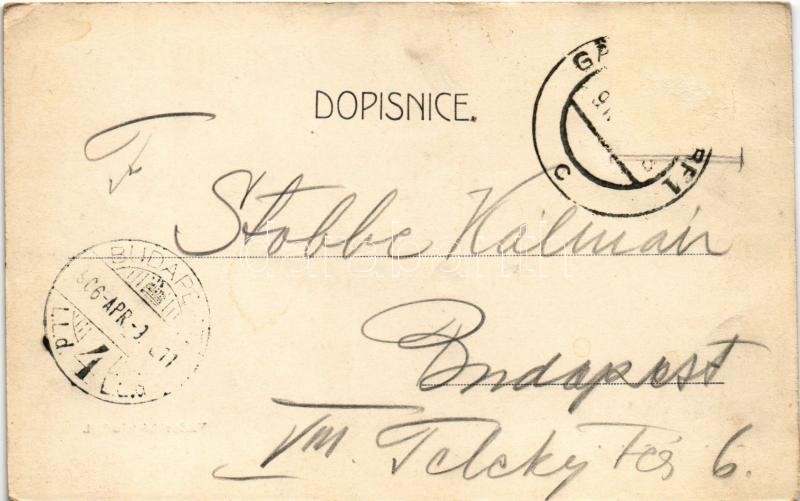 DOPISNICE.
T.
Stobbe Kálmán
Budapest
VIII. Teleky Tér 6.
BUDAPE
906-APR-9
4
C
darabanth